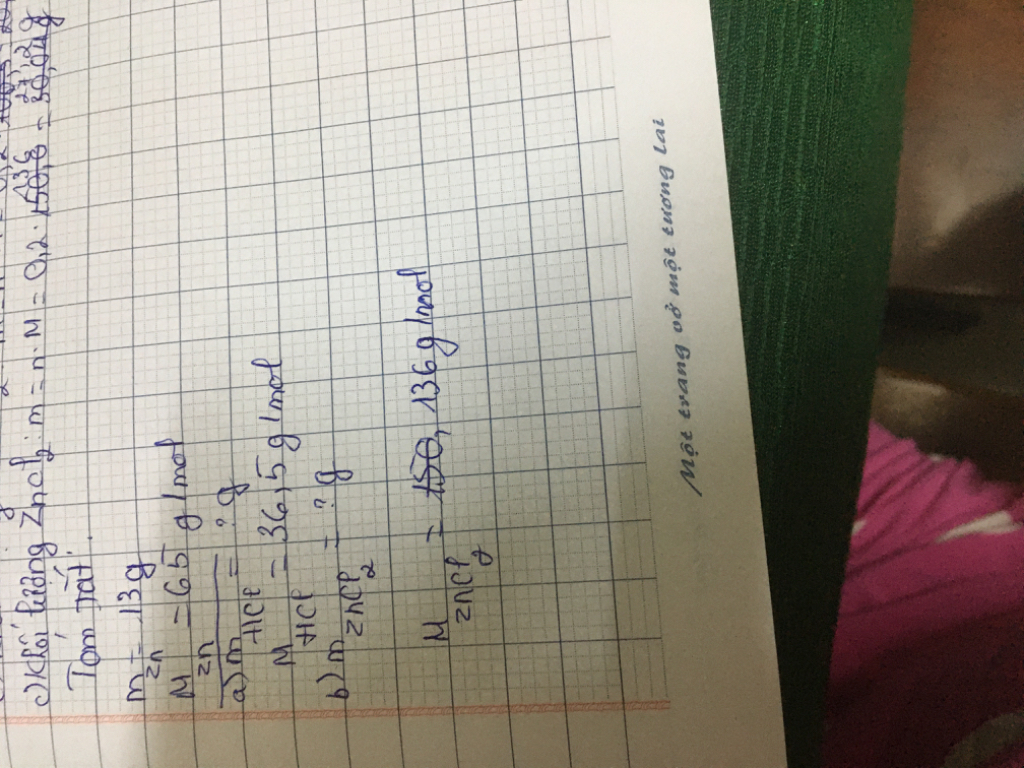 c) Khối lượng ZnCl2: m = n.M = 0,2 . 136 = 27,2g
Tóm tắt.
m Zn = 13g
M Zn = 65 g/mol
a) m HCl = ? g
M HCl = 36,5 g/mol
b) m ZnCl2 = ? g
M ZnCl2 = 150, 136 g/mol
Một trang vở một tương lai